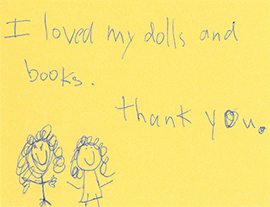 I loved my dolls and
books.
thank you.